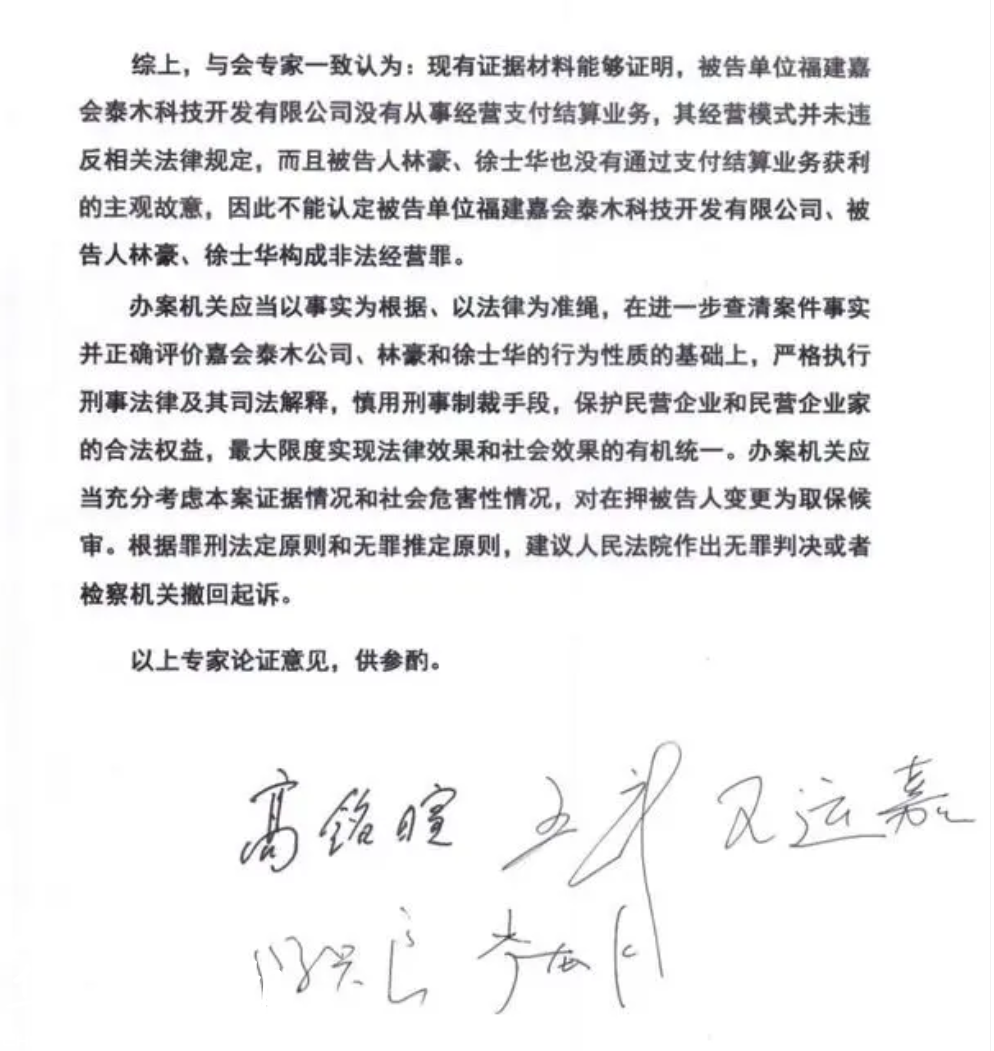 综上，与会专家一致认为：现有证据材料能够证明，被告单位福建嘉
会泰木科技开发有限公司没有从事经营支付结算业务，其经营模式并未违
反相关法律规定，而且被告人林豪、徐士华也没有通过支付结算业务获利
的主观故意，因此不能认定被告单位福建嘉会泰木科技开发有限公司、被
告人林豪、徐士华构成非法经营罪。
办案机关应当以事实为根据、以法律为准绳，在进一步查清案件事实
并正确评价嘉会泰木公司、林豪和徐士华的行为性质的基础上，严格执行
刑事法律及其司法解释，慎用刑事制裁手段，保护民营企业和民营企业家
的合法权益，最大限度实现法律效果和社会效果的有机统一。办案机关应
当充分考虑本案证据情况和社会危害性情况，对在押被告人变更为取保候
审。根据罪刑法定原则和无罪推定原则，建议人民法院作出无罪判决或者
检察机关撤回起诉。
以上专家论证意见，供参酌。
高铭暄